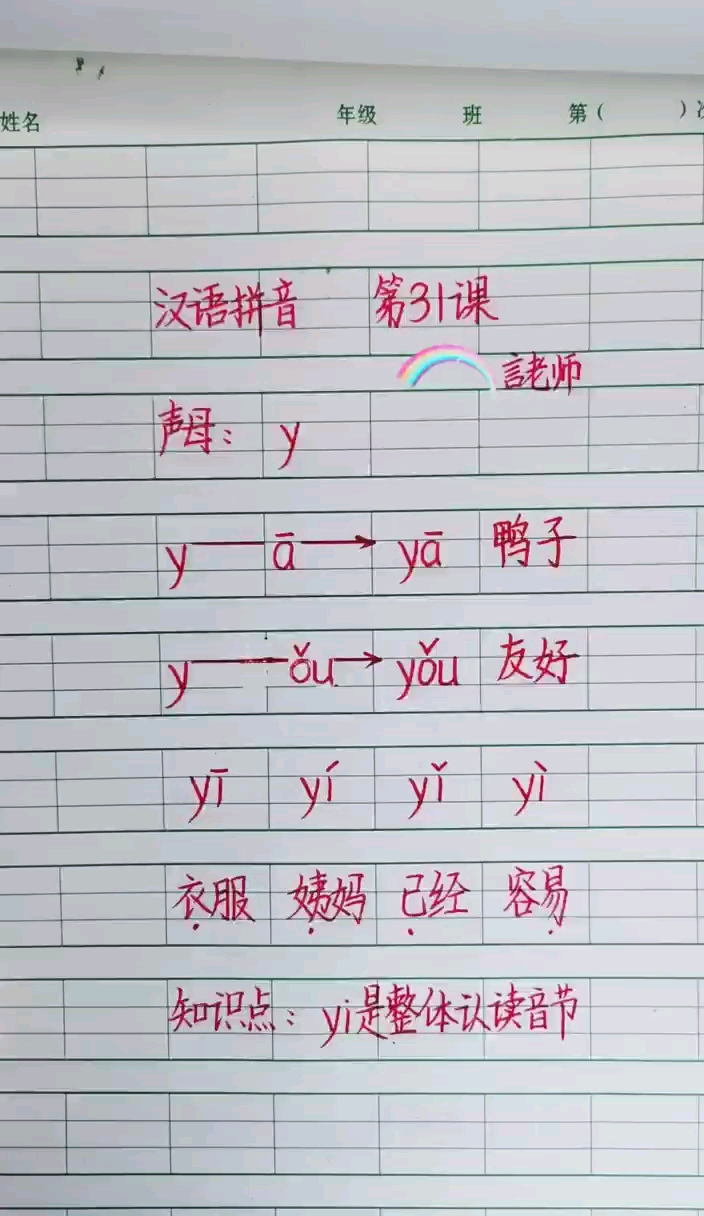 姓名 年级 班 第( )次
汉语拼音 第31课
言老师
声母: y
y ā yā 鸭子
y ǒu yǒu 友好
yī yí yǐ yì
衣服 姨妈 已经 容易
知识点: yi是整体认读音节